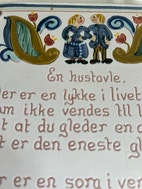 En hustavle.
er er en lykke i livet
m ikke vendes til l
t at du gleder en a
t er den eneste gl
er er en sorg i ve